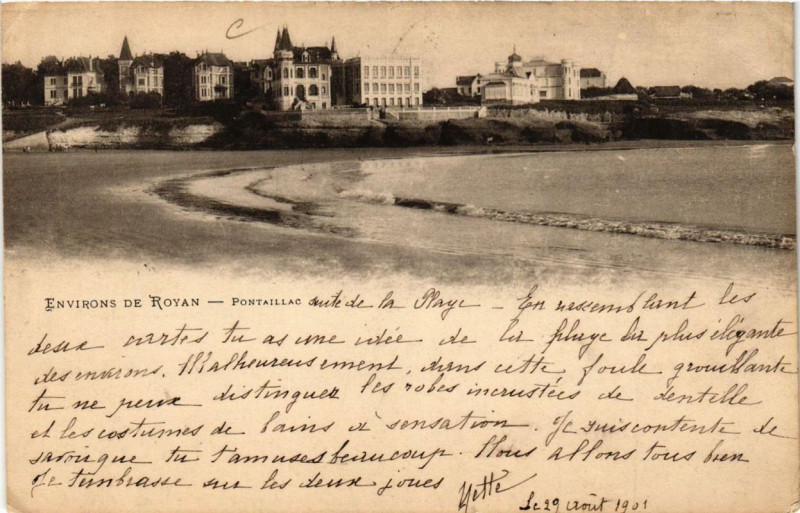 ENVIRONS DE ROYAN — PONTAILLAC suite de la Plage - En rassemblant les
deux cartes tu as une idée de la plage la plus élégante
des environs. Malheureusement, dans cette foule grouillante
tu ne peux distinguer les robes incrustées de dentelle
et les costumes de bains à sensation. Je suis contente de
savoir que tu t'amuses beaucoup. Nous allons tous bien
Je t'embrasse sur les deux joues Yette
Le 29 Août 1901